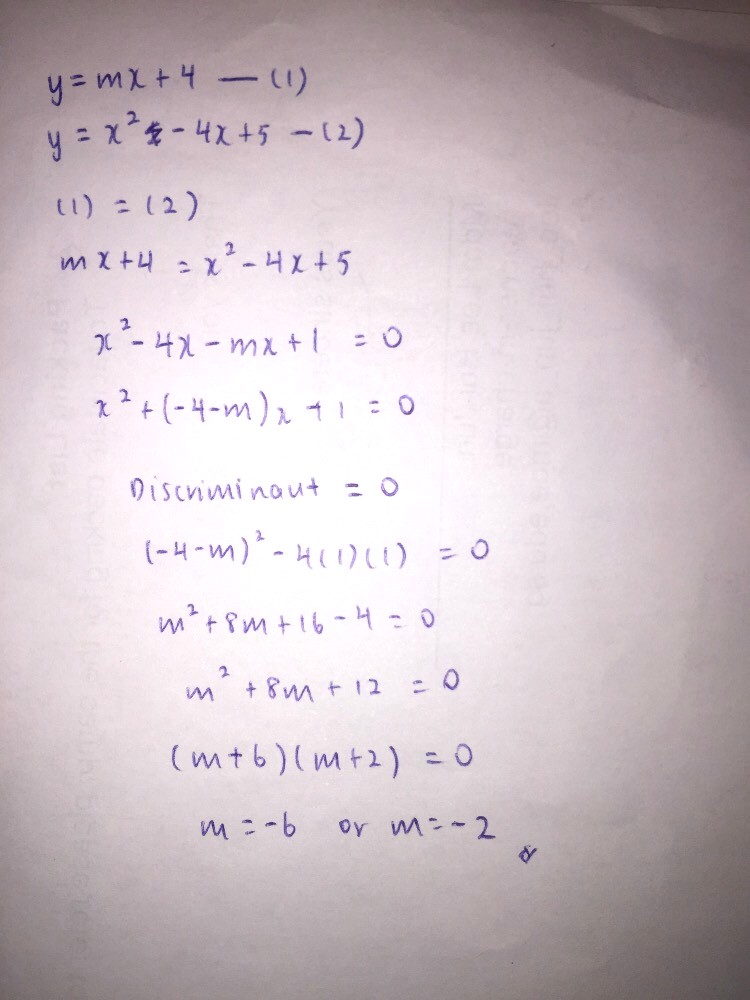 y = mx + 4 — (1)
y = x² - 4x + 5 - (2)
(1) = (2)
mx + 4 = x² - 4x + 5
x² - 4x - mx + 1 = 0
x² + (-4-m)x + 1 = 0
Discriminant = 0
(-4-m)² - 4(1)(1) = 0
m² + 8m + 16 - 4 = 0
m² + 8m + 12 = 0
(m+6)(m+2) = 0
m = -6 or m = -2